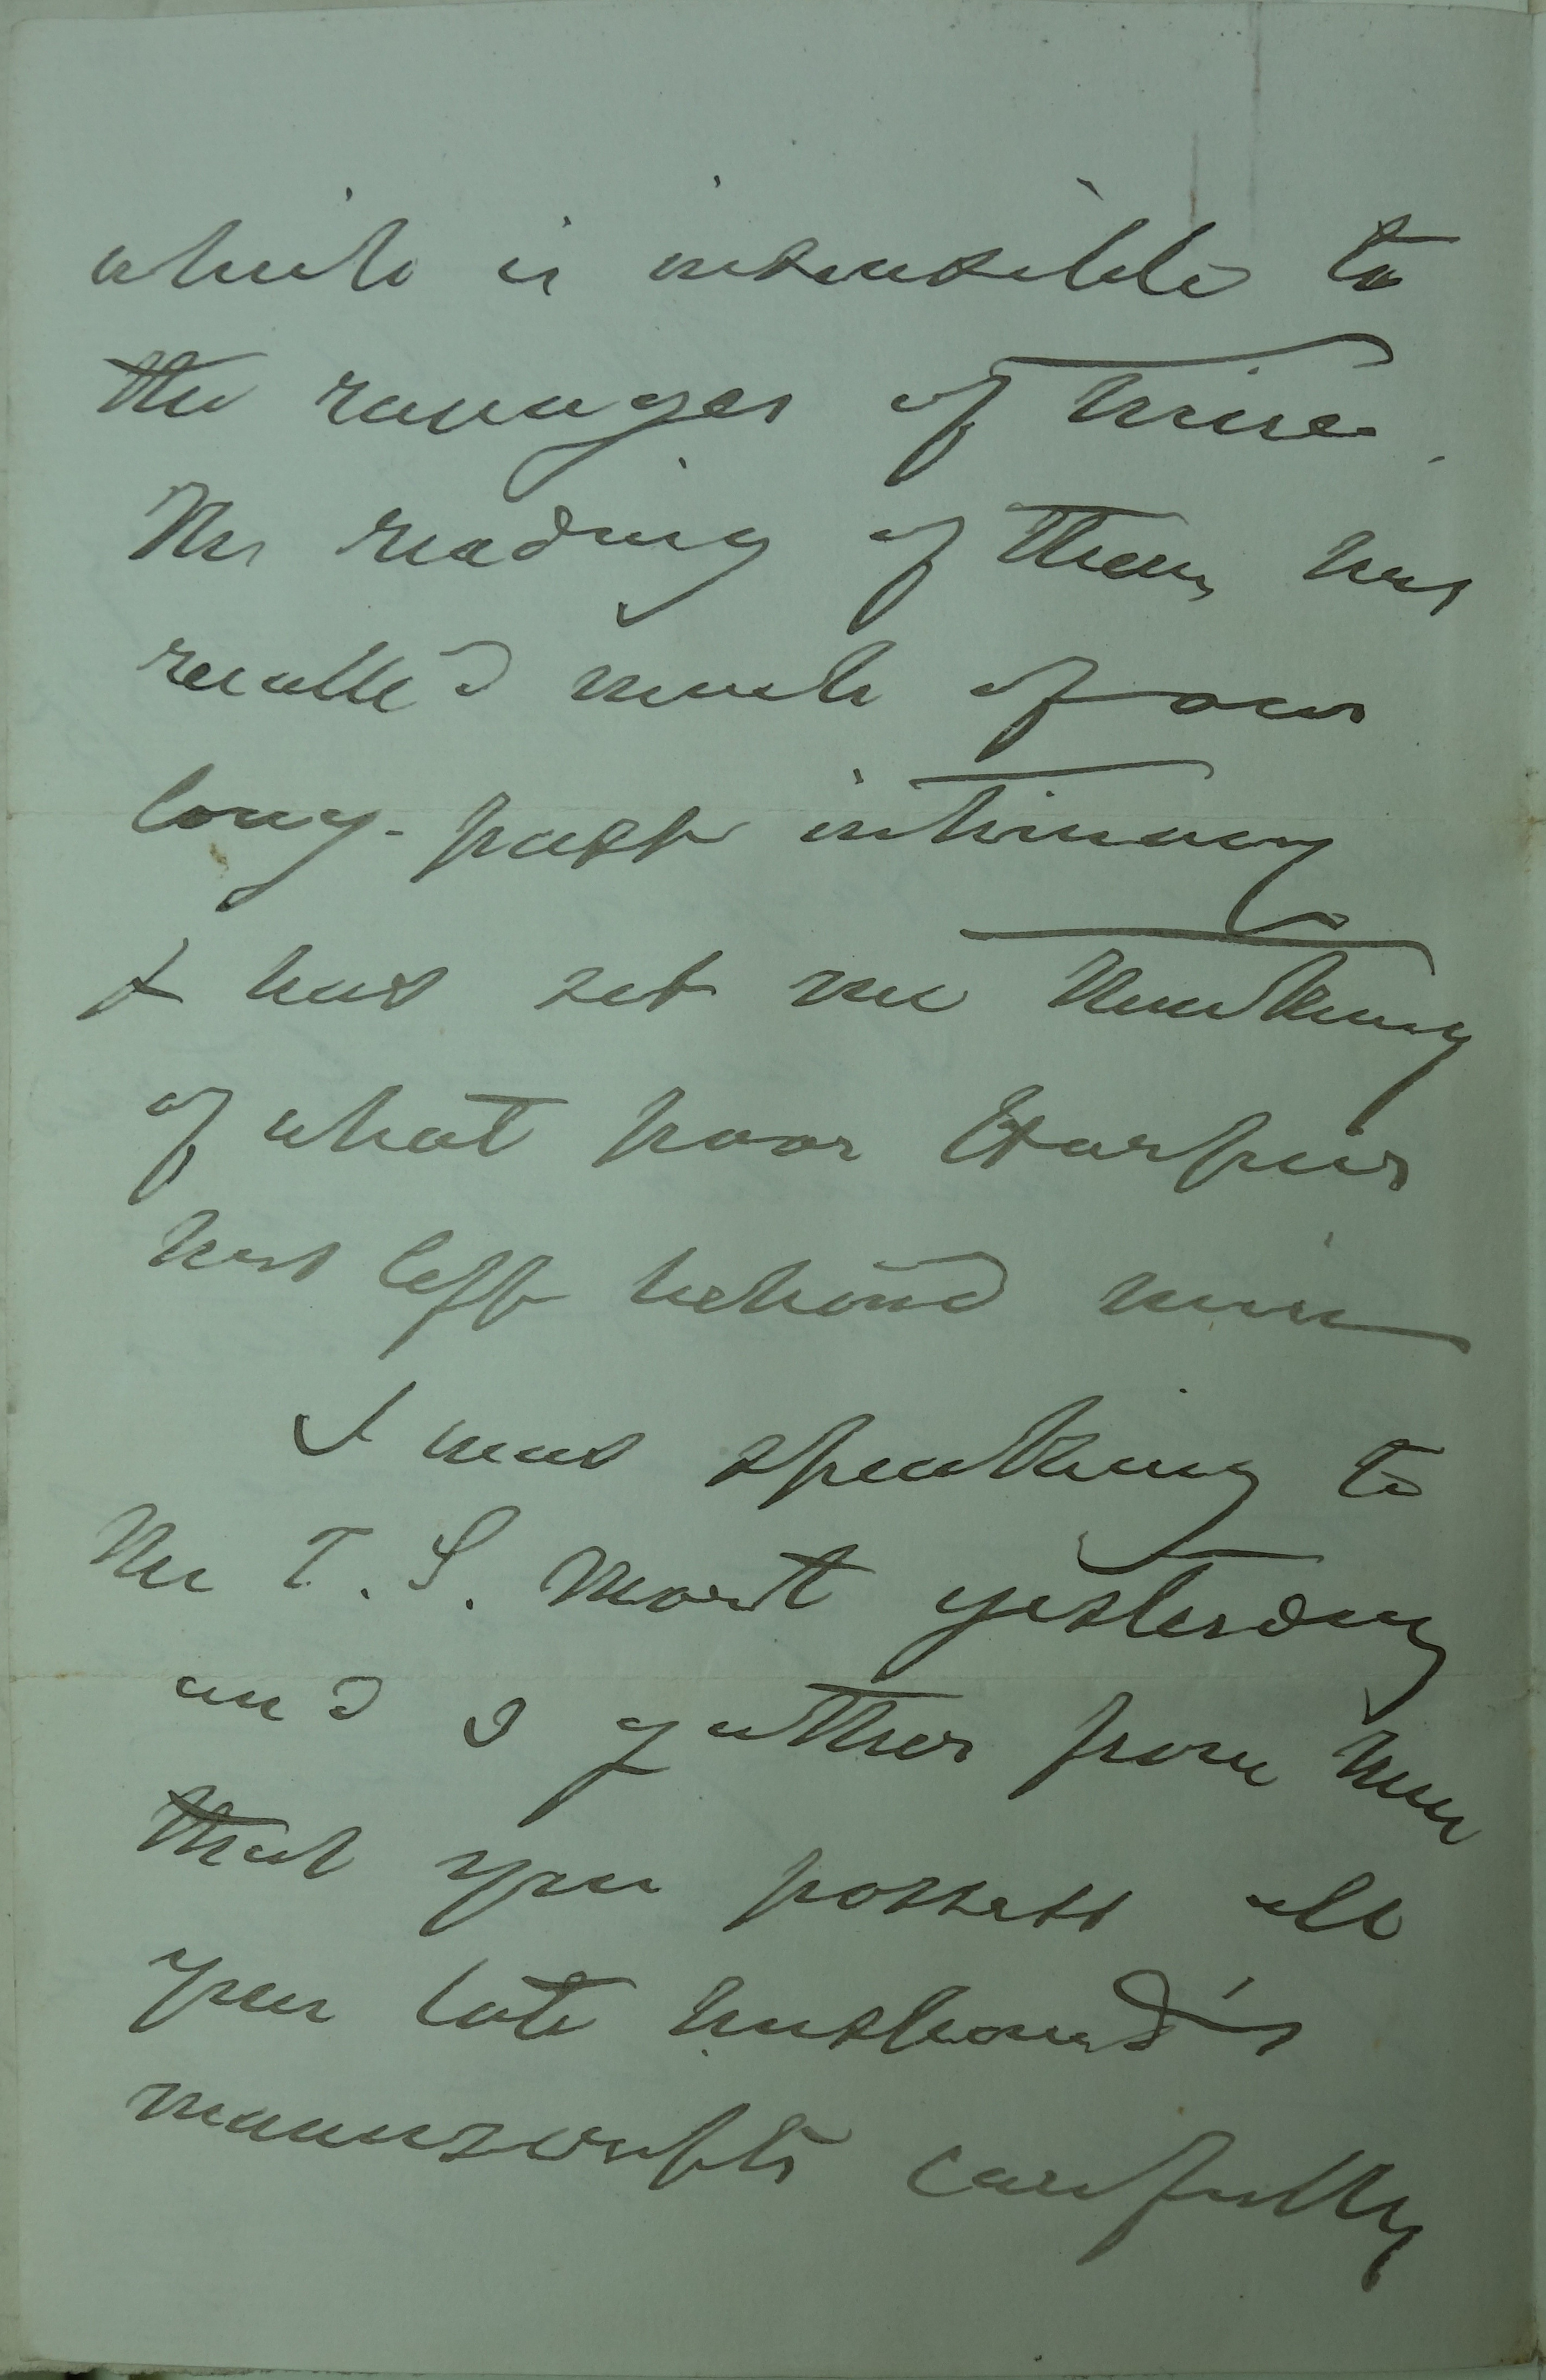 which is insensible to
the ravages of time.
The reading of them has
recalled much of our
long-past intimacy
& has set me thinking
of what poor Harpur
has left behind him
I was speaking to
Mr T. S. Mort yesterday
and I gather from him
that you possess all
your late husband's
manuscripts carefully